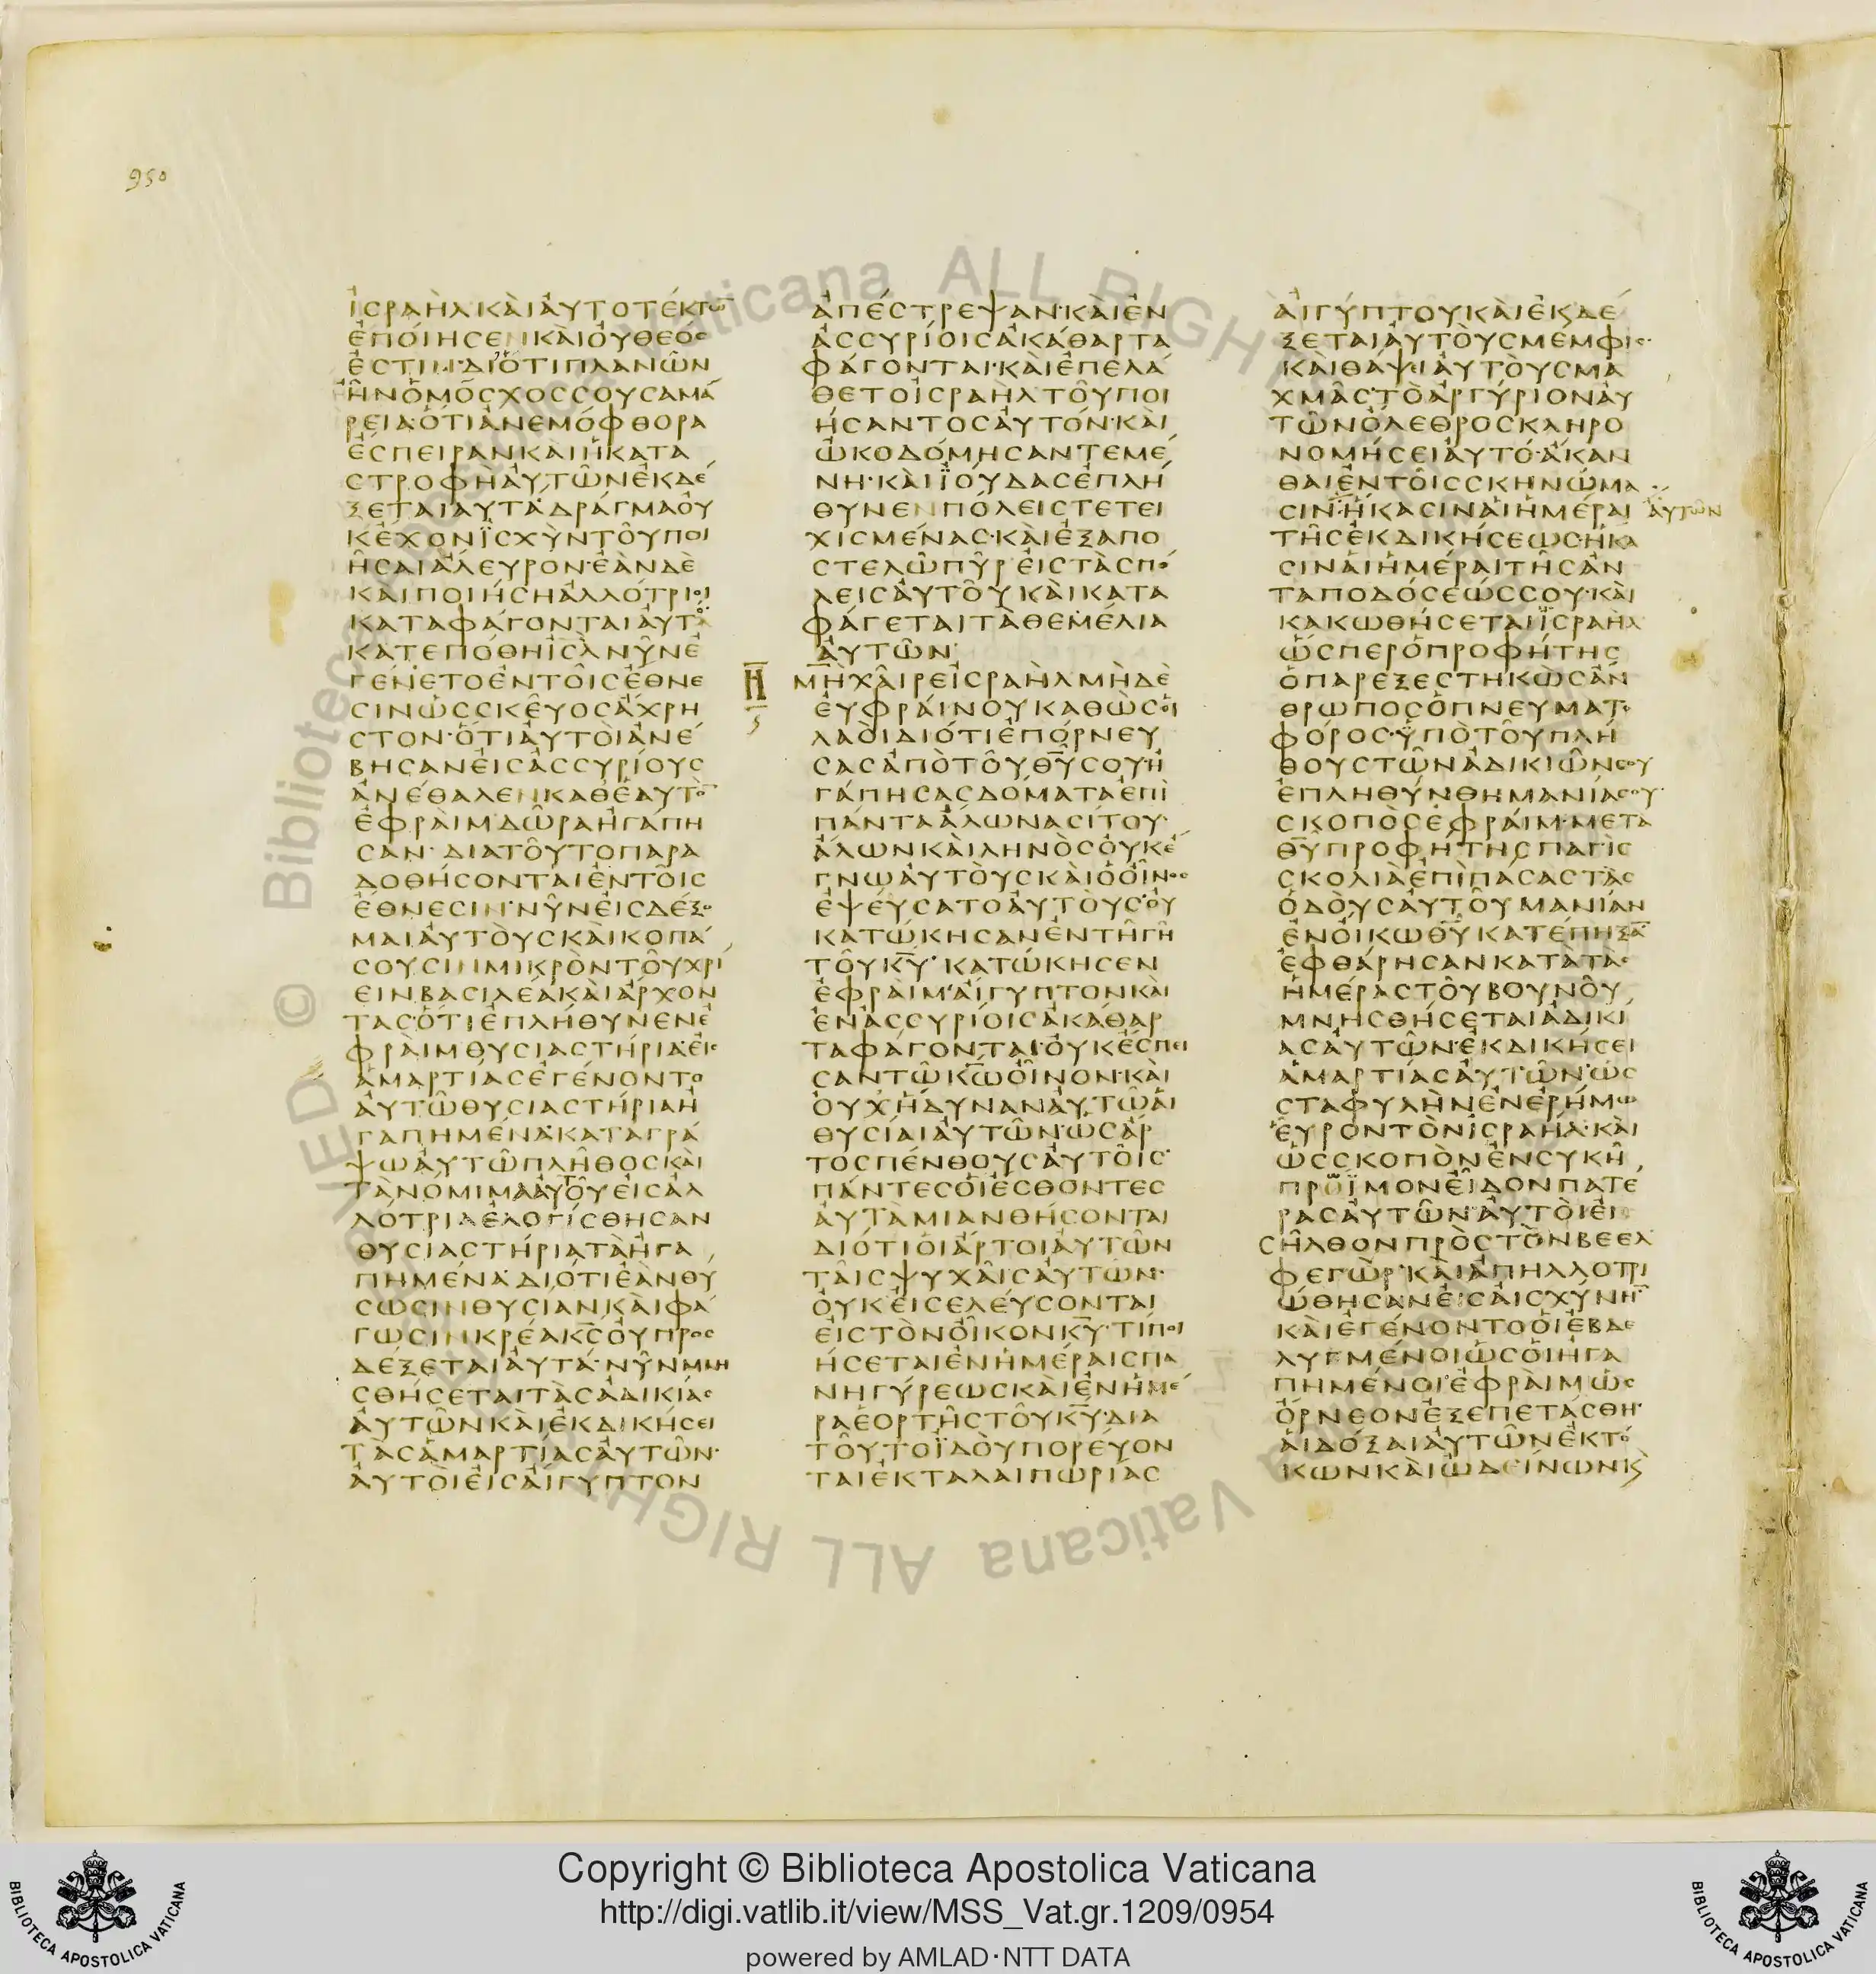 950
ἰσραὴλ καὶ αὐτὸ τέκτω̅
ἐποίησεν καὶ οὐ θεός
ἐστιν· διότι πλανῶν
ἦν ὁ μόσχος σου σαμά
ρεια· ὅτι ἀνεμόφθορα
ἔσπειραν καὶ ἡ κατα
στροφὴ αὐτῶν ἐκδέ
ξεται αὐτά· δράγμα οὐ
κ ἔχον ἰσχὺν τοῦ ποι
ῆσαι ἄλευρον· ἐὰν δὲ
καὶ ποιήσῃ ἀλλότριοι
καταφάγονται αὐτό
κατεπόθη ἰσλ νῦν ἐ
γένετο ἐν τοῖς ἔθνε
σιν ὡς σκεῦος ἄχρη
στον· ὅτι αὐτοὶ ἀνέ
βησαν εἰς ἀσσυρίους
ἀνέθαλεν καθ ἑαυτὸ̅
ἐφραὶμ δῶρα ἠγάπη
σαν· διὰ τοῦτο παρα
δοθήσονται ἐν τοῖς
ἔθνεσιν· νῦν εἰσδέξο
μαι αὐτοὺς καὶ κοπά
σουσιν μικρὸν τοῦ χρί
ειν βασιλέα καὶ ἄρχον
τας· ὅτι ἐπλήθυνεν ἐ
φραὶμ θυσιαστήρια· εἰς
ἁμαρτίας ἐγένοντο
αὐτῷ θυσιαστήρια ἠ
γαπημένα· καταγρά
ψω αὐτῷ πλῆθος καὶ
τὰ νόμιμα αὐτοῦ εἰς ἀλ
λότρια ἐλογίσθησαν
θυσιαστήρια τὰ ἠγα
πημένα· διότι ἐὰν θύ
σωσιν θυσίαν καὶ φά
γωσιν κρέα κ̅ς̅ οὐ προσ
δέξεται αὐτά· νῦν μνη
σθήσεται τὰς ἀδικίας
αὐτῶν καὶ ἐκδικήσει
τὰς ἁμαρτίας αὐτῶν·
αὐτοὶ εἰς αἴγυπτον
ἀπέστρεψαν· καὶ ἐν
ἀσσυρίοις ἀκάθαρτα
φάγονται· καὶ ἐπελά
θετο ἰσραὴλ τοῦ ποι
ήσαντος αὐτόν· καὶ
ᾠκοδόμησαν τεμέ
νη· καὶ ἰούδας ἐπλή
θυνεν πόλεις τετει
χισμένας· καὶ ἐξαπο
στελῶ πῦρ εἰς τὰς πό
λεις αὐτοῦ καὶ κατα
φάγεται τὰ θεμέλια
αὐτῶν·
Η̅
ς
μὴ χαῖρε ἰσραὴλ μὴ δὲ
εὐφραίνου καθὼς οἱ
λαοὶ διότι ἐπόρνευ
σας ἀπὸ τοῦ θ̅υ̅ σου· ἠ
γάπησας δόματα ἐπὶ
πάντα ἅλωνα σίτου·
ἅλων καὶ ληνὸς οὐκ ἔ
γνω αὐτοὺς καὶ ὁ οἶνος
ἐψεύσατο αὐτούς· οὐ
κατῴκησαν ἐν τῇ γῇ
τοῦ κ̅υ̅· κατῴκησεν
ἐφραὶμ· αἴγυπτον καὶ
ἐν ἀσσυρίοις ἀκάθαρ
τα φάγονται· οὐκ ἔσπει
σαν τῷ κ̅ω̅ οἶνον· καὶ
οὐχ ἥδυναν αὐτῷ αἱ
θυσίαι αὐτῶν· ὡς ἄρ
τος πένθους αὐτοῖς·
πάντες οἱ ἔσθοντες
αὐτὰ μιανθήσονται
διότι οἱ ἄρτοι αὐτῶν
ταῖς ψυχαῖς αὐτῶν·
οὐκ εἰσελεύσονται
εἰς τὸν οἶκον κ̅υ̅· τί ποι
ήσεται ἐν ἡμέραις πα
νηγύρεως καὶ ἐν ἡμέ
ρα ἑορτῆς τοῦ κ̅υ̅· διὰ
τοῦτο ἰδοὺ πορεύον
ται ἐκ ταλαιπωρίας
αἰγύπτου καὶ ἐκδέ
ξεται αὐτοὺς μέμφις·
καὶ θάψει αὐτοὺς μα
χμὰς· τὸ ἀργύριον αὐ
τῶν ὄλεθρος κληρο
νομήσει αὐτό· ἄκαν
θαι ἐν τοῖς σκηνώμα
σιν· ἥκασιν αἱ ἡμέραι
αὐτῶν
τῆς ἐκδικήσεως· ἥκα
σιν αἱ ἡμέραι τῆς ἀν
ταποδόσεώς σου· καὶ
κακωθήσεται ἰσραὴλ
ὥσπερ ὁ προφήτης
ὁ παρεξεστηκὼς ἄν
θρωπος ὁ πνευματο
φόρος· ὑπὸ τοῦ πλή
θους τῶν ἀδικιῶν σου
ἐπληθύνθη μανία σου·
σκοπὸς ἐφραὶμ· μετὰ
θ̅υ̅ προφήτης παγὶς
σκολιὰ ἐπὶ πάσας τὰς
ὁδοὺς αὐτοῦ μανίαν
ἐν οἴκῳ θ̅υ̅ κατέπηξα̅
ἐφθάρησαν κατὰ τὰς
ἡμέρας τοῦ βουνοῦ
μνησθήσεται ἀδικί
ας αὐτῶν· ἐκδικήσει
ἁμαρτίας αὐτῶν· ὡς
σταφυλὴν ἐν ἐρήμω
εὗρον τὸν ἰσραήλ· καὶ
ὡς σκοπὸν ἐν συκῇ
πρώϊμον εἶδον πατέ
ρας αὐτῶν· αὐτοὶ εἰ
σῆλθον πρὸς τὸν βεελ
φεγώρ· καὶ ἀπηλλοτρι
ώθησαν εἰς αἰσχύνην̅
καὶ ἐγένοντο οἱ ἐβδε
λυγμένοι ὡς οἱ ἠγα
πημένοι· ἐφραὶμ ὡς
ὄρνεον ἐξεπετάσθη·
αἱ δόξαι αὐτῶν ἐκ τό
κων καὶ ὠδείνων κ
Copyright © Biblioteca Apostolica Vaticana
http://digi.vatlib.it/view/MSS_Vat.gr.1209/0954
powered by AMLAD·NTT DATA
BIBLIOTECA APOSTOLICA VATICANA
BIBLIOTECA APOSTOLICA VATICANA